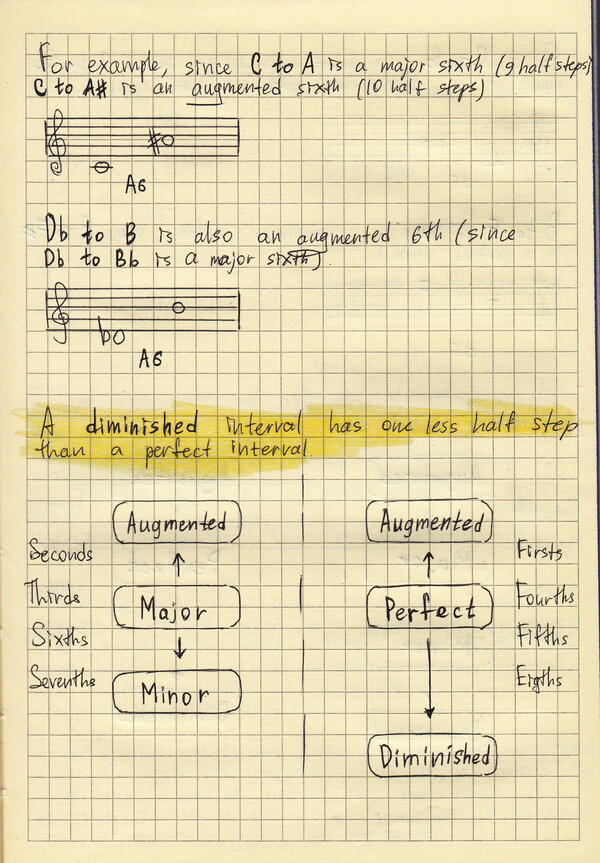 For example, since C to A is a major sixth (9 half steps)
C to A# is an augmented sixth (10 half steps)
A6
Db to B is also an augmented 6th (since
Db to Bb is a major sixth).
A6
A diminished interval has one less half step
than a perfect interval.
Augmented
Augmented
Seconds
Firsts
Thirds
Major
Perfect
Fourths
Sixths
Fifths
Sevenths
Minor
Eigths
Diminished